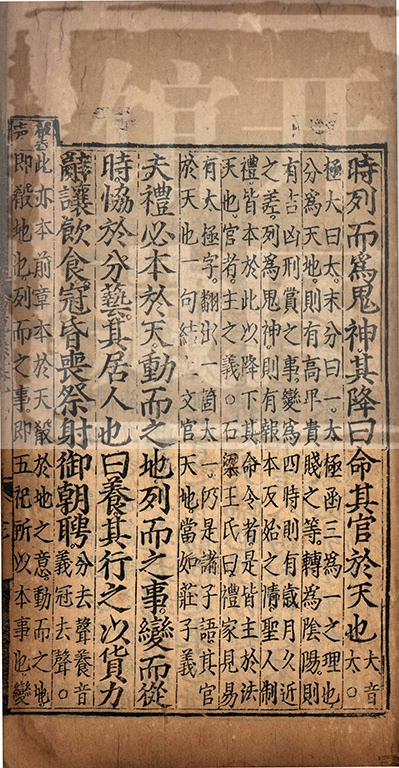 時列而爲鬼神其降曰命其官於天也大音太○
極大曰太未分曰一太極函三爲一之理也
分爲天地則有高卑貴賤之等轉爲陰陽則
有吉凶刑賞之事變爲四時則有歲月久近
之差列爲鬼神則有報本反始之情聖人制
禮皆本於此以降下其命令者是皆主於法
天也官者主之義○石梁王氏曰禮家見易
有大極字翻出一箇大一仍是諸子語其官
於天也一句結上文官天地當如莊子義
夫禮必本於天動而之地列而之事變而從
時恊於分藝其居人也曰養其行之以貨力
辭讓飲食冠昏喪祭射御朝聘分去聲養音義冠去聲○
此亦本前章本於天殽於地之意動而之地
即殽地也列而之事即五祀所以本事也變